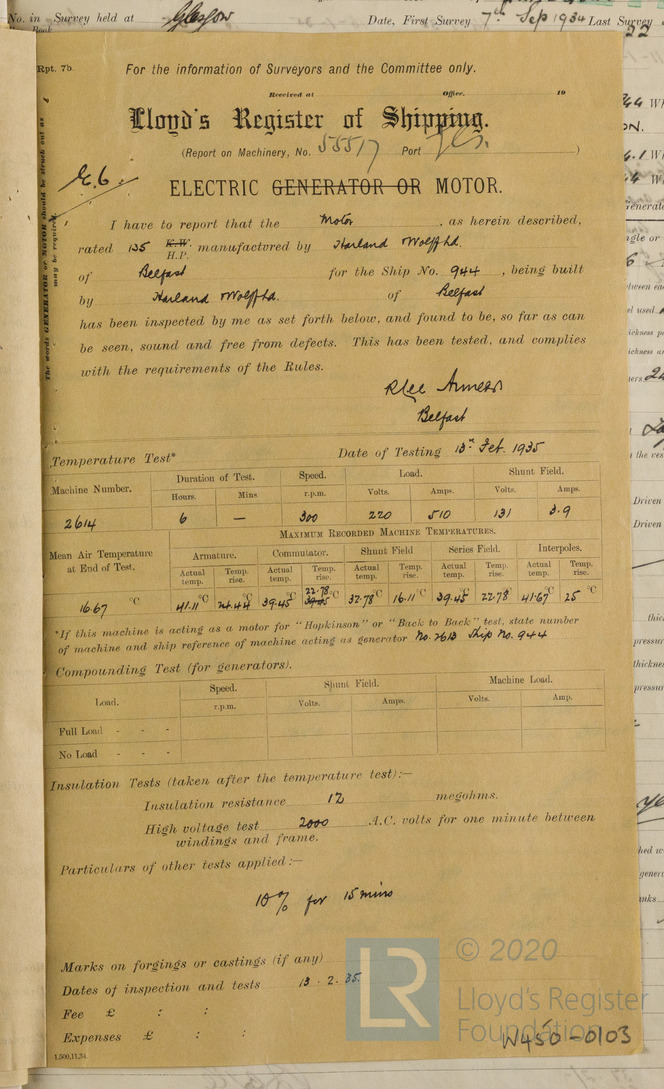 No. in Survey held at Glasgow Date, First Survey 7th Sep 1934 Last Survey
Rpt. 7b.
For the information of Surveyors and the Committee only.
Received at Office. 19
Lloyd's Register of Shipping.
(Report on Machinery, No. 55517 Port Gls. )
ELECTRIC GENERATOR OR MOTOR.
The words GENERATOR or MOTOR should be struck out as
may be required.
I have to report that the Motor , as herein described,
rated 135 K.W. H.P. manufactured by Harland Wolff Ltd.
of Belfast for the Ship No. 944 , being built
by Harland Wolff Ltd. of Belfast
has been inspected by me as set forth below, and found to be, so far as can
be seen, sound and free from defects. This has been tested, and complies
with the requirements of the Rules.
Belfast
Temperature Test* Date of Testing 13th Feb. 1935
Machine Number. Duration of Test. Speed. Load. Shunt Field.
Hours. Mins r.p.m. Volts. Amps. Volts. Amps.
2614 6 — 300 220 510 131 3.9
Mean Air Temperature at End of Test. MAXIMUM RECORDED MACHINE TEMPERATURES.
Armature. Commutator. Shunt Field Series Field. Interpoles.
Actual temp. Temp. rise. Actual temp. Temp. rise. Actual temp. Temp. rise. Actual temp. Temp. rise. Actual temp. Temp. rise.
16.67 °C 41.11 °C 24.44 °C 39.45 °C 22.78 39.45 °C 32.78 °C 16.11 °C 39.45 °C 22.78 °C 41.67 °C 25 °C
*If this machine is acting as a motor for "Hopkinson" or "Back to Back" test, state number
of machine and ship reference of machine acting as generator No. 2613 Ship No. 944
Compounding Test (for generators).
Load. Speed. Shunt Field. Machine Load.
r.p.m. Volts. Amps. Volts. Amp.
Full Load - - -
No Load - - -
Insulation Tests (taken after the temperature test):—
Insulation resistance 12 megohms.
High voltage test 2000 A.C. volts for one minute between
windings and frame.
Particulars of other tests applied:—
10% for 15 mins
Marks on forgings or castings (if any)
Dates of inspection and tests 13.2.35.
Fee £ : :
Expenses £ : :
1,500,11,34.
LR
© 2020
Lloyd's Register
Foundation
W450-0103